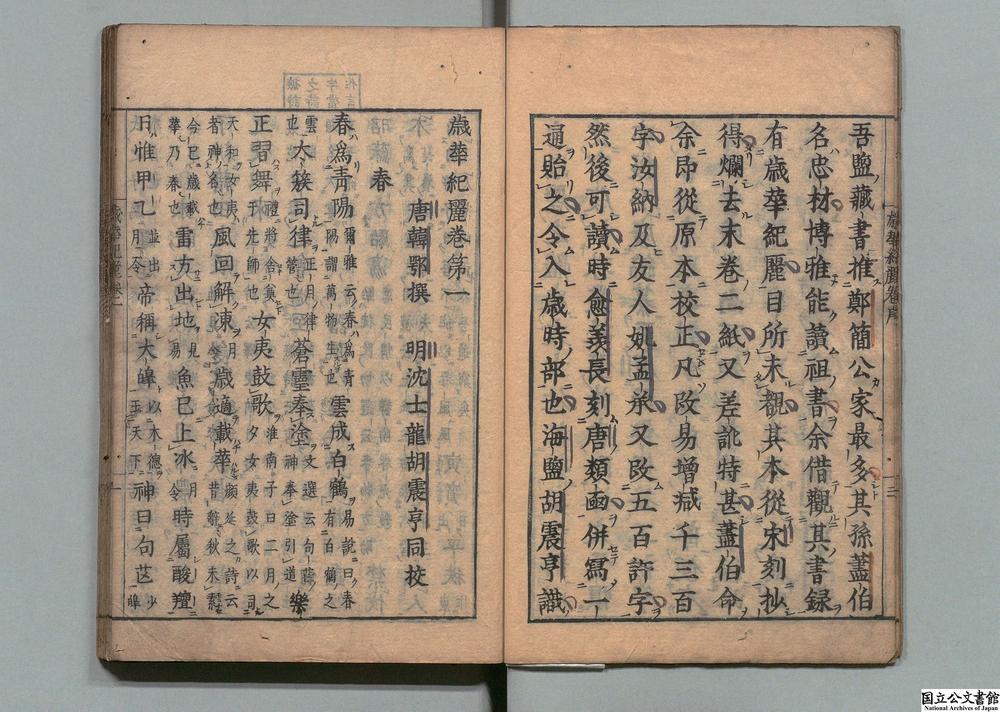 吾鹽藏書推鄭簡公家最多其孫蓋伯
名忠材博雅能讀祖書余借觀其書録
有歳華紀麗目所未覩其本從宋刻抄
得爛去末卷二紙又差訛特甚蓋伯命
余即從原本校正凡改易增减千三百
字汝納及友人姚孟承又改五百許字
然後可讀時愈羨長刻唐類凾併寫一
通貽之令入歳時部也海鹽胡震亨識
歳華紀麗卷第一
唐韓鄂撰 明沈士龍胡震亨同校
春
春爲青陽爾雅云春爲青陽謂萬物生也雲成白鶴易說曰春有白鶴之
雲也大簇司律正月律管也蒼靈奉塗文選云句芒神奉塗引道樂
正習舞禮將舍奠于先師女夷鼓歌淮南子曰二月之夕女夷鼓歌以司
天和女夷者神名也風回解凍月令歳適載華顔延之詩云昔辭秋未素
今已歳載華乃春也雷方出地見易魚已上氷月令時屬酸羶
日惟甲乙並出月令帝稱大皡以木德王天下神曰句芒少皡
国立公文書館
National Archives of Japan